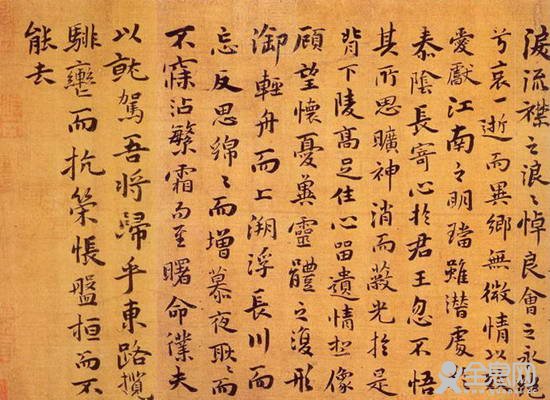 淚流襟之浪〻悼良會之永絕
兮哀一逝而異鄉無微情以效
愛獻江南之明璫雖潛處
泰陰長寄心於君王忽不悟
其所思曠神消而蔽光於是
背下陵高足住心留遺情想像
顧望懷憂冀靈體之復形
御輕舟而上溯浮長川而
忘反思綿〻而增慕夜耿〻而
不寐沾繁霜而至曙命僕夫
以就駕吾將歸乎東路攬
騑轡而抗策悵盤桓而不
能去
全景网